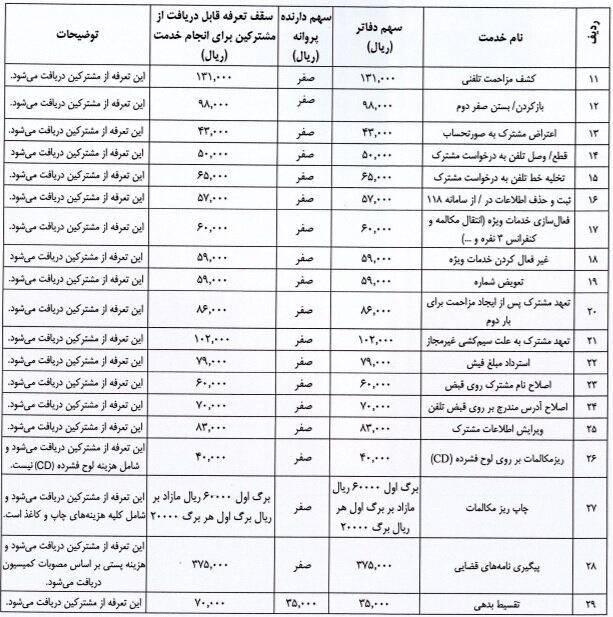 ردیف	نام خدمت	سهم دفاتر (ریال)	سهم دارنده پروانه (ریال)	سقف تعرفه قابل دریافت از مشترکین برای انجام خدمت (ریال)	توضیحات
۱۱	کشف مزاحمت تلفنی	۱۳۱,۰۰۰	صفر	۱۳۱,۰۰۰	این تعرفه از مشترکین دریافت می‌شود.
۱۲	بازکردن/ بستن صفر دوم	۹۸,۰۰۰	صفر	۹۸,۰۰۰	این تعرفه از مشترکین دریافت می‌شود.
۱۳	اعتراض مشترک به صورتحساب	۴۳,۰۰۰	صفر	۴۳,۰۰۰	این تعرفه از مشترکین دریافت می‌شود.
۱۴	قطع/ وصل تلفن به درخواست مشترک	۵۰,۰۰۰	صفر	۵۰,۰۰۰	این تعرفه از مشترکین دریافت می‌شود.
۱۵	تخلیه خط تلفن به درخواست مشترک	۶۵,۰۰۰	صفر	۶۵,۰۰۰	این تعرفه از مشترکین دریافت می‌شود.
۱۶	ثبت و حذف اطلاعات در / از سامانه ۱۱۸	۵۷,۰۰۰	صفر	۵۷,۰۰۰	این تعرفه از مشترکین دریافت می‌شود.
۱۷	فعال‌سازی خدمات ویژه (انتقال مکالمه و کنفرانس ۳ نفره و ...)	۶۰,۰۰۰	صفر	۶۰,۰۰۰	این تعرفه از مشترکین دریافت می‌شود.
۱۸	غیر فعال کردن خدمات ویژه	۵۹,۰۰۰	صفر	۵۹,۰۰۰	این تعرفه از مشترکین دریافت می‌شود
۱۹	تعویض شماره	۵۹,۰۰۰	صفر	۵۹,۰۰۰	این تعرفه از مشترکین دریافت می‌شود.
۲۰	تعهد مشترک پس از ایجاد مزاحمت برای بار دوم	۸۶,۰۰۰	صفر	۸۶,۰۰۰	این تعرفه از مشترکین دریافت می‌شود.
۲۱	تعهد مشترک به علت سیم‌کشی غیرمجاز	۱۰۲,۰۰۰	صفر	۱۰۲,۰۰۰	این تعرفه از مشترکین دریافت می‌شود.
۲۲	استرداد مبلغ فیش	۷۹,۰۰۰	صفر	۷۹,۰۰۰	این تعرفه از مشترکین دریافت می‌شود.
۲۳	اصلاح نام مشترک روی قبض	۶۰,۰۰۰	صفر	۶۰,۰۰۰	این تعرفه از مشترکین دریافت می‌شود.
۲۴	اصلاح آدرس مندرج بر روی قبض تلفن	۷۰,۰۰۰	صفر	۷۰,۰۰۰	این تعرفه از مشترکین دریافت می‌شود.
۲۵	ویرایش اطلاعات مشترک	۸۳,۰۰۰	صفر	۸۳,۰۰۰	این تعرفه از مشترکین دریافت می‌شود.
۲۶	ریزمکالمات بر روی لوح فشرده (CD)	۴۰,۰۰۰	صفر	۴۰,۰۰۰	این تعرفه از مشترکین دریافت می‌شود و شامل هزینه لوح فشرده (CD) نیست.
۲۷	چاپ ریز مکالمات	برگ اول ۶۰۰۰۰ ریال مازاد بر برگ اول هر برگ ۲۰۰۰۰ ریال	صفر	برگ اول ۶۰۰۰۰ ریال مازاد بر برگ اول هر برگ ۲۰۰۰۰ ریال	این تعرفه از مشترکین دریافت می‌شود و شامل کلیه هزینه‌های چاپ و کاغذ است.
۲۸	پیگیری نامه‌های قضایی	۳۷۵,۰۰۰	صفر	۳۷۵,۰۰۰	این تعرفه از مشترکین دریافت می‌شود و هزینه پستی بر اساس مصوبات کمیسیون دریافت می‌شود.
۲۹	تقسیط بدهی	۳۵,۰۰۰	۳۵,۰۰۰	۷۰,۰۰۰	این تعرفه از مشترکین دریافت می‌شود.